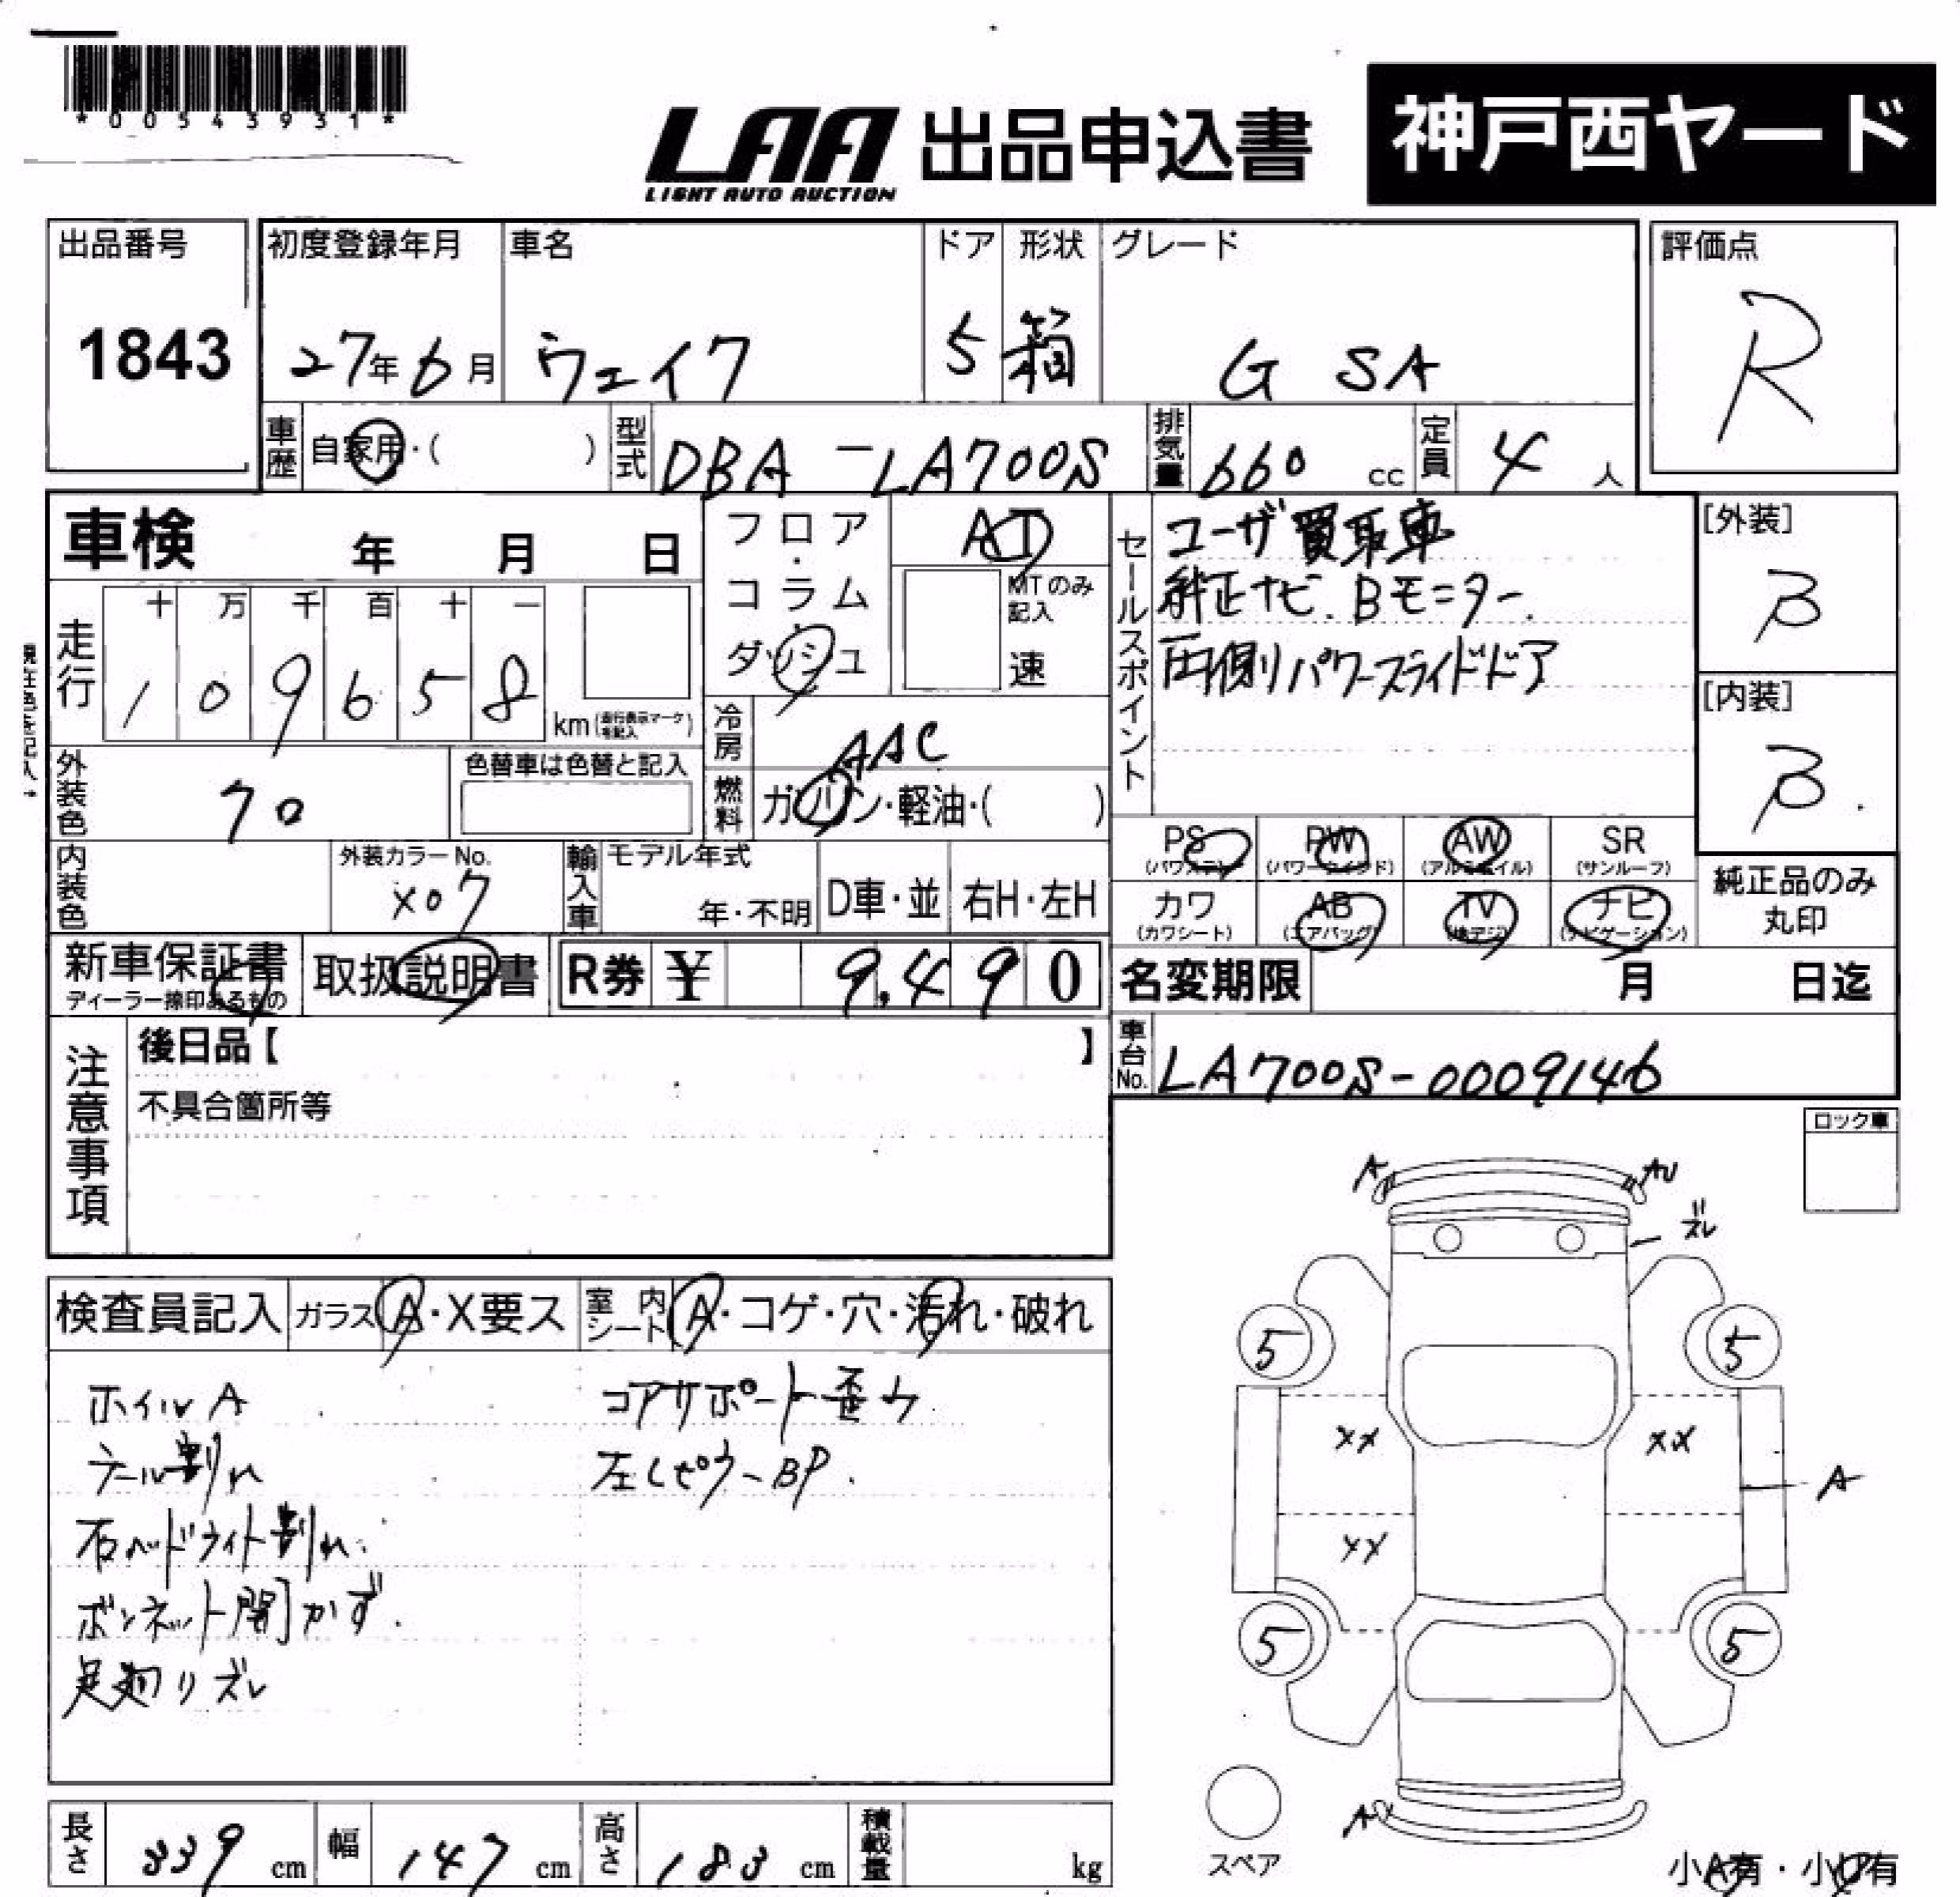 *00543931*
LAA 出品申込書 神戸西ヤード
LIGHT AUTO AUCTION
出品番号 初度登録年月 車名 ドア 形状 グレード 評価点
1843 27年6月 ウェイク 5 箱 G SA R
車歴 自家用・( ) 型式 DBA-LA700S 排気量 660 cc 定員 4 人
車検 年 月 日
フロア・コラム・ダッシュ
AT
MTのみ記入
速
走行 十 万 千 百 十 一
1 0 9 6 5 8 km(走行表示マークを記入)
セールスポイント
ユーザ買取車
純正ナビ.Bモニター.
両側パワースライドドア
[外装]
B
[内装]
B
冷房 AAC
外装色 クロ
色替車は色替と記入
燃料 ガソリン・軽油・( )
内装色
外装カラーNo.
X07
輸入車 モデル年式
年・不明 D車・並 右H・左H
PS (パワステ) PW (パワーウインド) AW (アルミホイル) SR (サンルーフ)
カワ (カワシート) AB (エアバッグ) TV (地デジ) ナビ (ナビゲーション)
純正品のみ
丸印
新車保証書
ディーラー捺印あるもの
取扱説明書 R券 ¥ 9,490
名変期限 月 日迄
車台No. LA700S-0009146
注意事項
後日品【 】
不具合箇所等
ロック車
A AU
ズレ
検査員記入 ガラス A・X要ス 室内シート A・コゲ・穴・汚れ・破れ
ホイルA
テール割れ
右ヘッドライト割れ.
ボンネット開かず.
足廻りズレ
コアサポート歪み
左Cピラ-BP.
5 5
XX XX
A
XX
5 5
A
スペア
小A有・小U有
長さ 339 cm 幅 147 cm 高さ 183 cm 積載量 kg